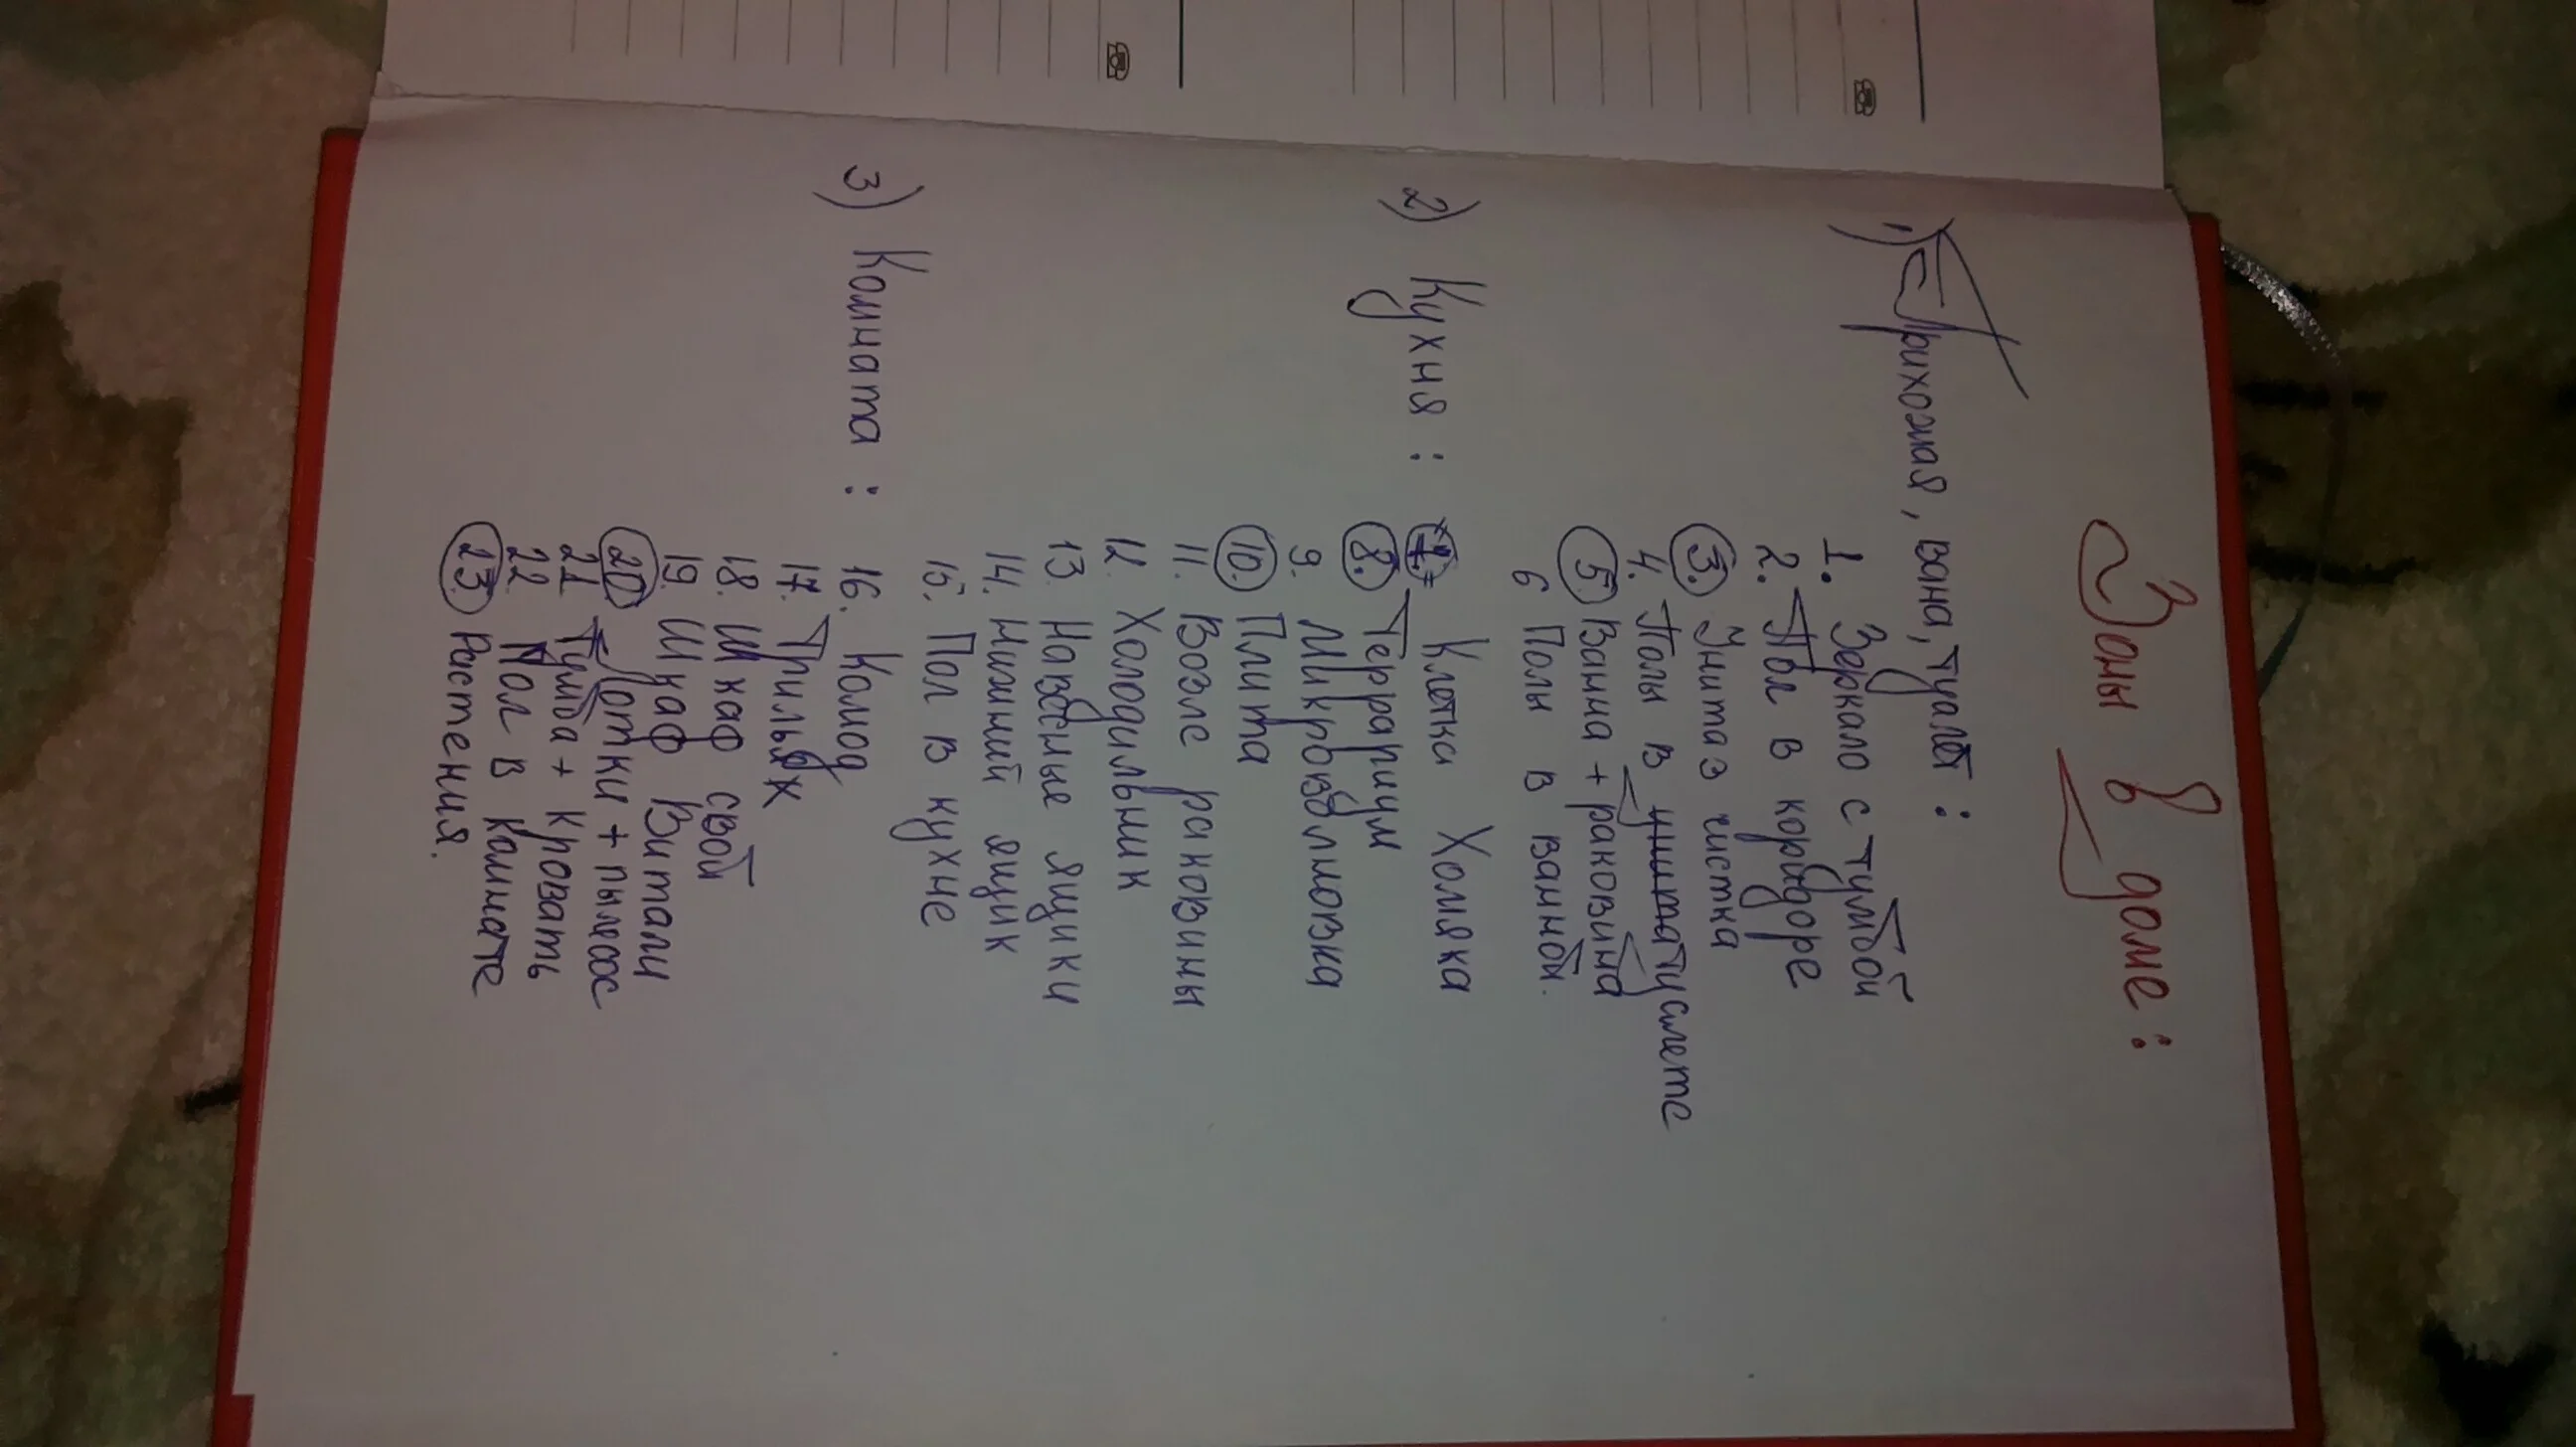 Зоны в доме:
1) Прихожая, вана, туалет:
1. Зеркало с тумбой
2. Пол в коридоре
3. Унитаз чистка
4. Полы в туалете
5. Ванна + раковина
6 Полы в ванной.
2) Кухня:
7. Клетки Хомяка
8. Террариум
9. Микроволновка
10. Плита
11. Возле раковины
12. Холодильник
13. Навесные ящики
14. Нижний ящик
15. Пол в кухне
3) Комната:
16. Комод
17. Трильяж
18. Шкаф свой
19. Шкаф Витали
20. Лотки + пылесос
21 Тумба + Кровать
22 Пол в комнате
23. Растения.